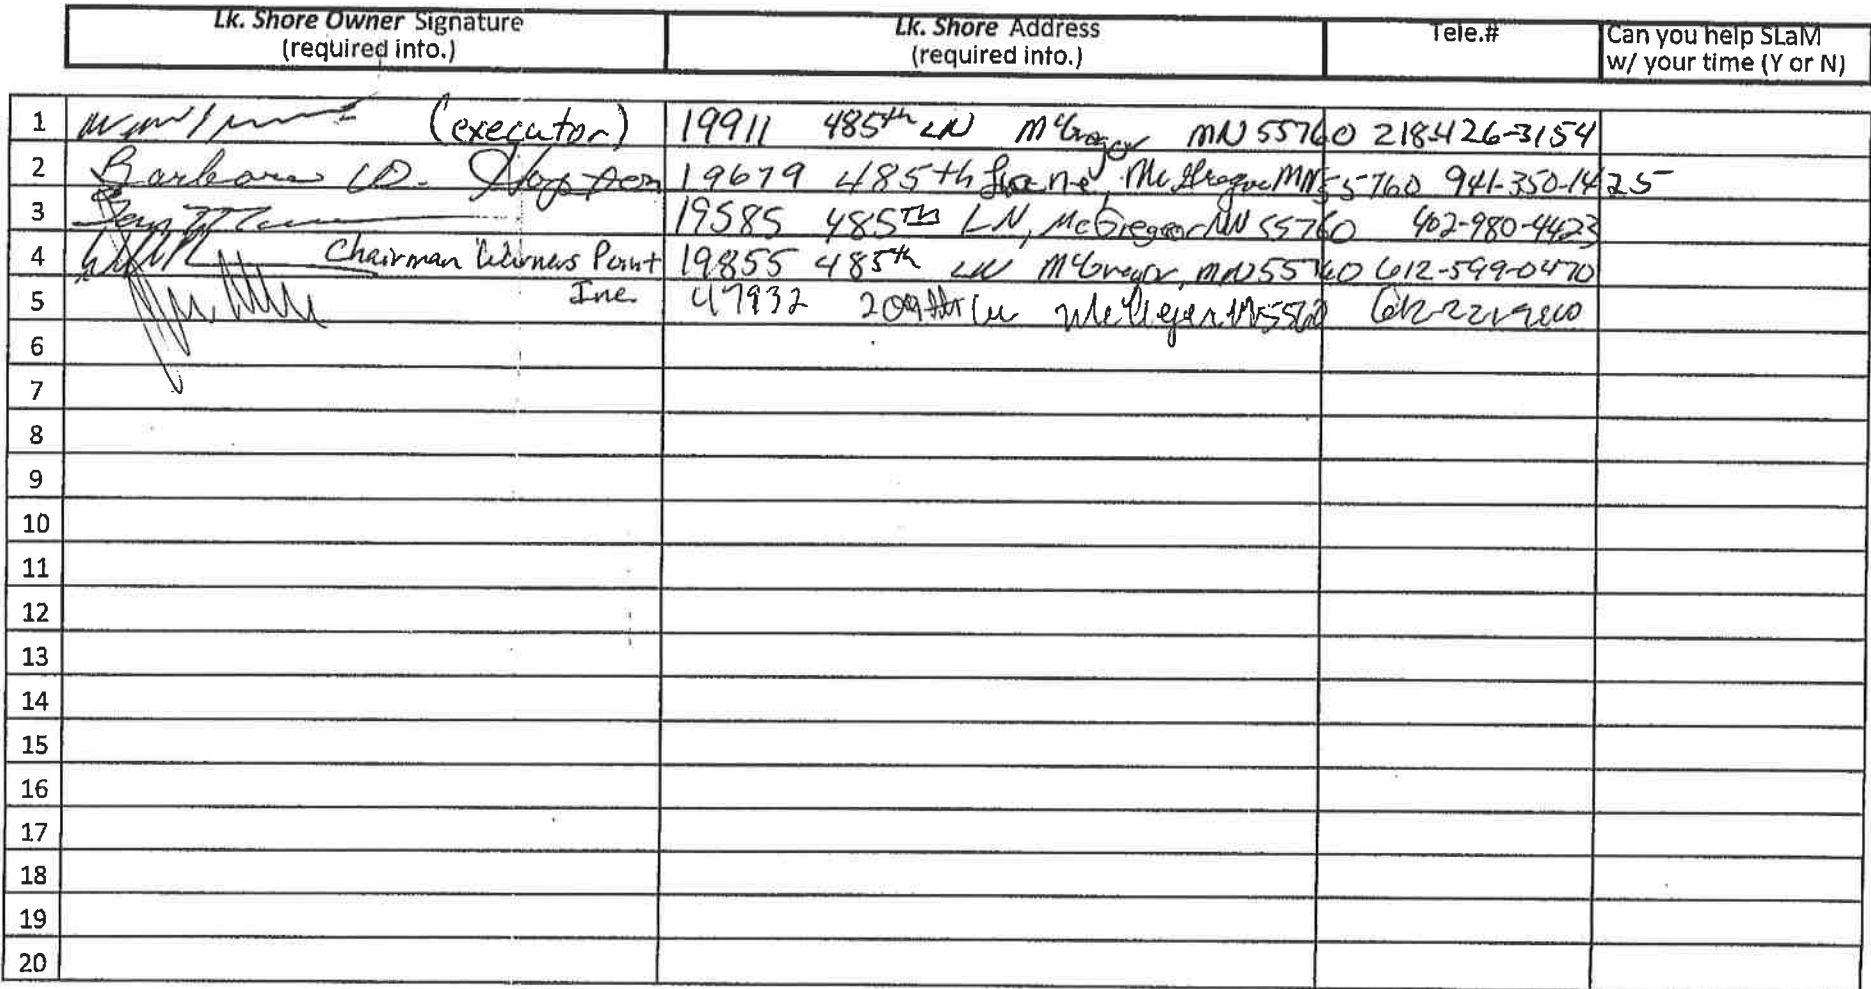 Lk. Shore Owner Signature
(required into.)
Lk. Shore Address
(required into.)
Tele.#
Can you help SLaM
w/ your time (Y or N)
1 (executor) 19911 485th LN McGregor MN 55760 218-426-3154
2 Barbara D. 19679 485th Lane, McGregor MN 55760 941-350-1425
3 19585 485TH LN, McGregor MN 55760 402-980-4423
4 Chairman Point 19855 485th LN McGregor, MN 55760 612-599-0470
Inc.
5 47932 209th
6
7
8
9
10
11
12
13
14
15
16
17
18
19
20